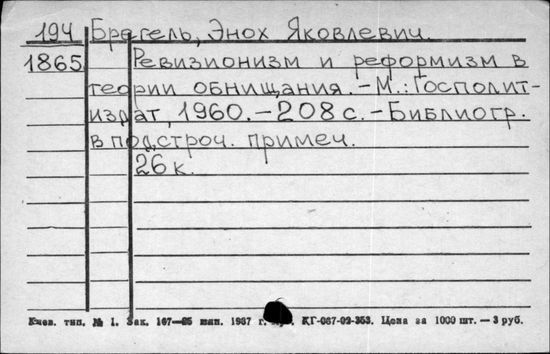 194 Брегель, Энох Яковлевич.
1865 Ревизионизм и реформизм в
теории обнищания. – М.: Госполит-
издат, 1960. – 208 с. – Библиогр.
в подстроч. примеч.
26 к.
Киев. тип. № 1. Зак. 167—85 тип. 1987 г. КГ-087-02-353. Цена за 1000 шт. — 3 руб.